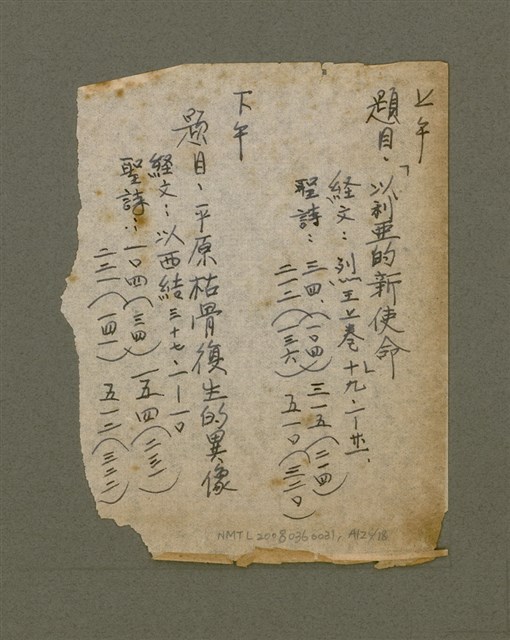 上午
題目、「以利亞的新使命」
経文：列王上卷十九、一－廿一、
聖詩：三四、(一〇四) 三一五(二一四)
二一二(一三六) 五一〇(三二〇)
下午
題目、平原枯骨復生的異像
経文：以西結三十七、一－一〇
聖詩：一〇四(三四) 一五四(二三一)
二三一(一四一) 五一二(三二二)
NMTL20080360031, A124/18